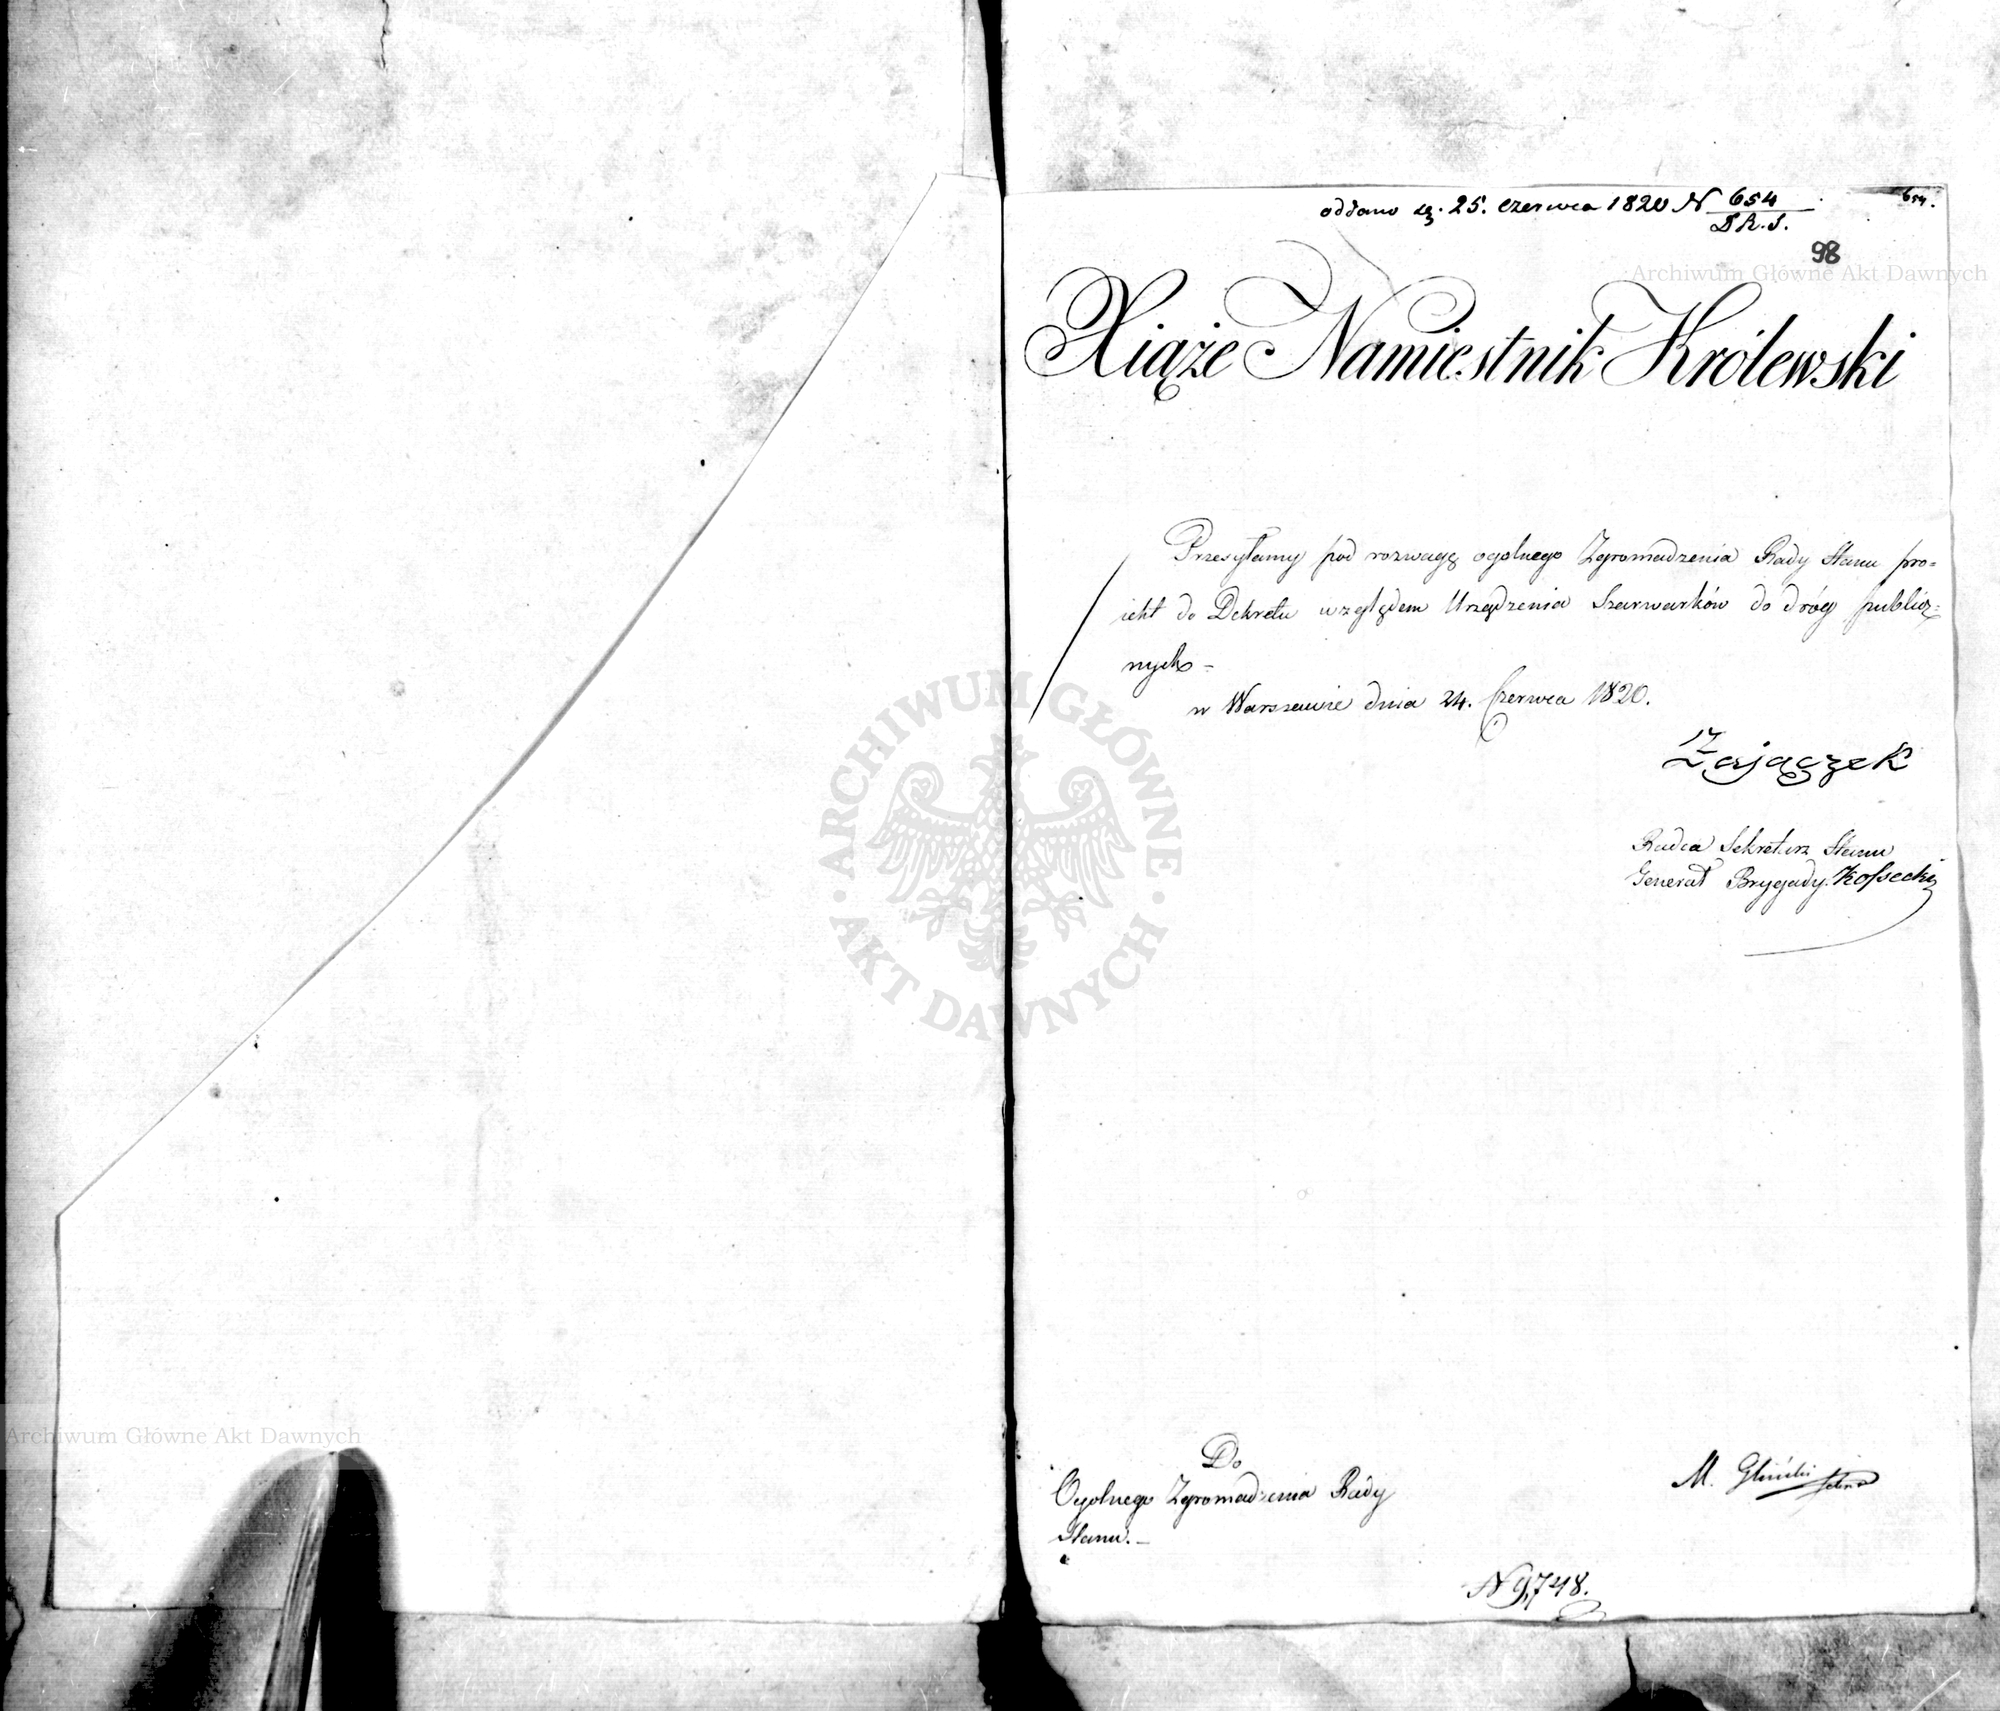 oddano sę. 25. czerwca 1820 N 654
DR.S.
654.
98
Archiwum Główne Akt Dawnych
Xiąże Namiestnik Królewski
Przesyłamy pod rozwagę ogolnego Zgromadzenia Rady Stanu pro=
iekt do Dekretu względem Urządzenia Szarwarków do dróg publicz=
nych –
w Warszawie dnia 24. Czerwca 1820.
Zajączek
Radca Sekretarz Stanu
Generał Brygady. Kossecki
ARCHIWUM GŁÓWNE · AKT DAWNYCH ·
Archiwum Główne Akt Dawnych
Do
Ogolnego Zgromadzenia Rady
Stanu. –
M. Gliński
N 9,748.